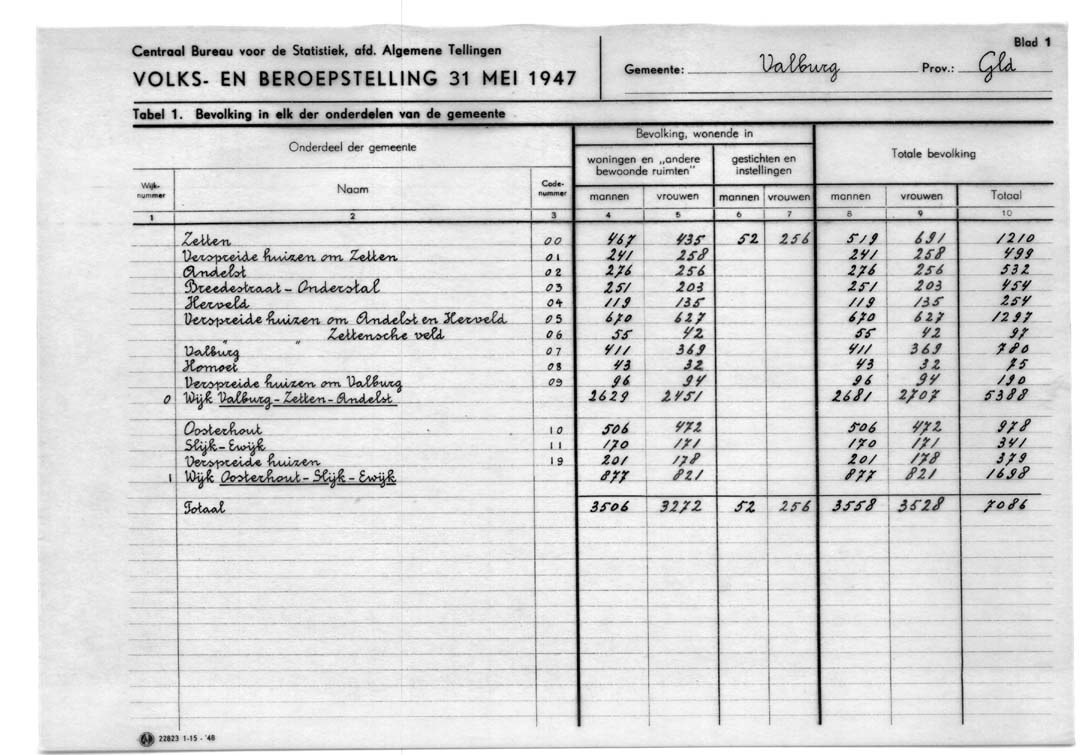 Centraal Bureau voor de Statistiek, afd. Algemene Tellingen
VOLKS- EN BEROEPSTELLING 31 MEI 1947
Gemeente: Valburg Prov.: Gld
Blad 1
Tabel 1. Bevolking in elk der onderdelen van de gemeente
Onderdeel der gemeente
Bevolking, wonende in
woningen en „andere bewoonde ruimten”
gestichten en instellingen
Totale bevolking
Wijk-nummer Naam Code-nummer mannen vrouwen mannen vrouwen mannen vrouwen Totaal
1 2 3 4 5 6 7 8 9 10
Zetten 00 467 435 52 256 519 691 1210
Verspreide huizen om Zetten 01 241 258 241 258 499
Andelst 02 276 256 276 256 532
Breedestraat - Onderstal 03 251 203 251 203 454
Herveld 04 119 135 119 135 254
Verspreide huizen om Andelst en Herveld 05 670 627 670 627 1297
" " Zettensche veld 06 55 42 55 42 97
Valburg 07 411 369 411 369 780
Homoet 08 43 32 43 32 75
Verspreide huizen om Valburg 09 96 94 96 94 190
0 Wijk Valburg - Zetten - Andelst 2629 2451 2681 2707 5388
Oosterhout 10 506 472 506 472 978
Slijk - Ewijk 11 170 171 170 171 341
Verspreide huizen 19 201 178 201 178 379
1 Wijk Oosterhout - Slijk - Ewijk 877 821 877 821 1698
Totaal 3506 3272 52 256 3558 3528 7086
22823 1-15 - '48